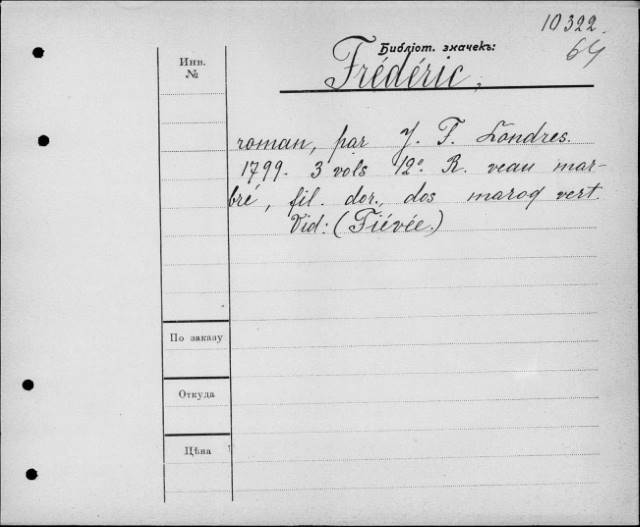 10322.
64
Библіот. значекъ:
Инв.
№
Frédéric,
roman, par J. F. Londres.
1799. 3 vols 12º R. veau mar-
bré, fil. dor., dos maroq vert.
Vid: (Fiévée.)
По заказу
Откуда
Цѣна